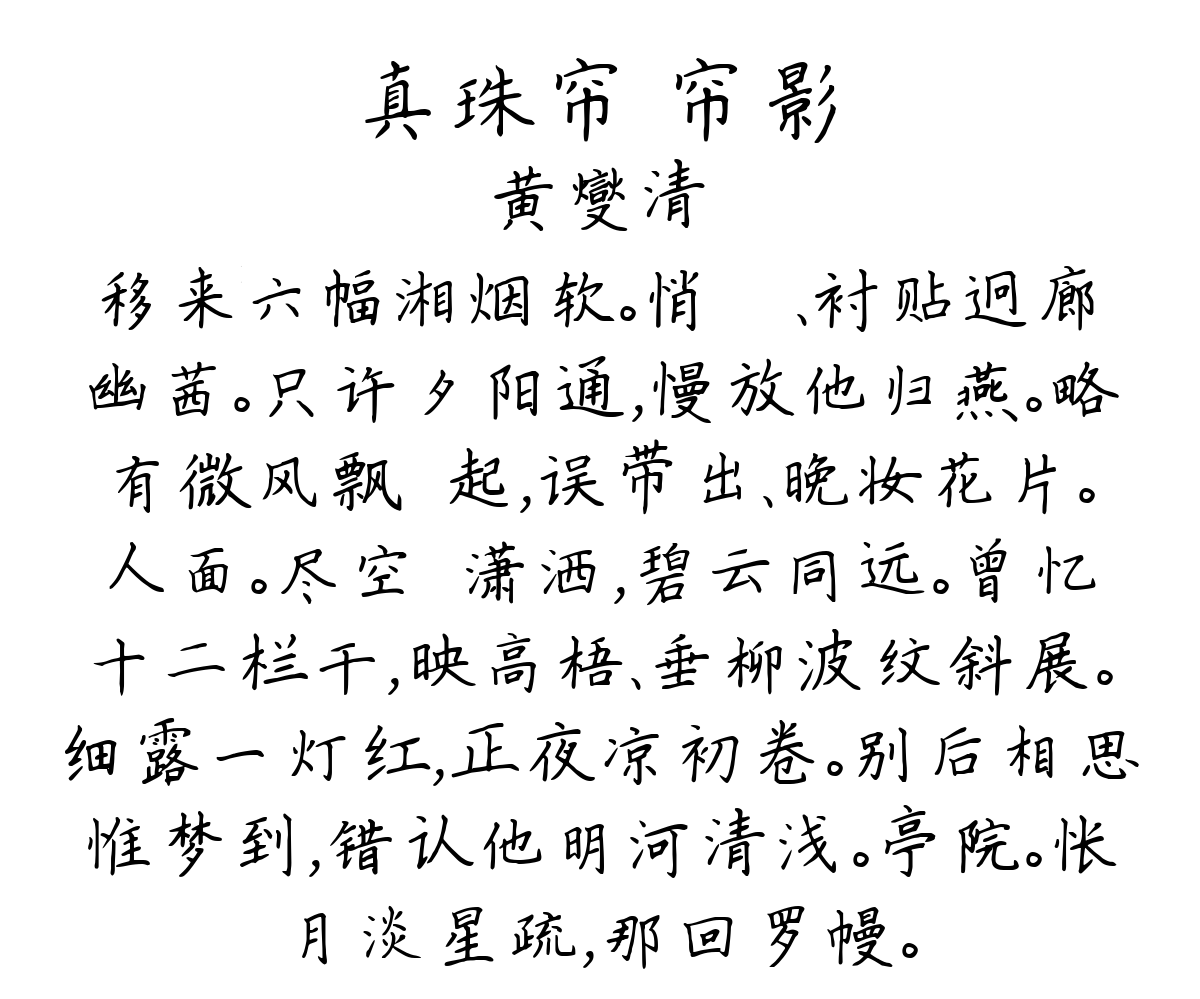 真珠帘 帘影
黄燮清
移来六幅湘烟软。悄 、衬贴迥廊
幽茜。只许夕阳通,慢放他归燕。略
有微风飘 起,误带出、晚妆花片。
人面。尽空 潇洒,碧云同远。曾忆
十二栏干,映高梧、垂柳波纹斜展。
细露一灯红,正夜凉初卷。别后相思
惟梦到,错认他明河清浅。亭院。怅
月淡星疏,那回罗幔。